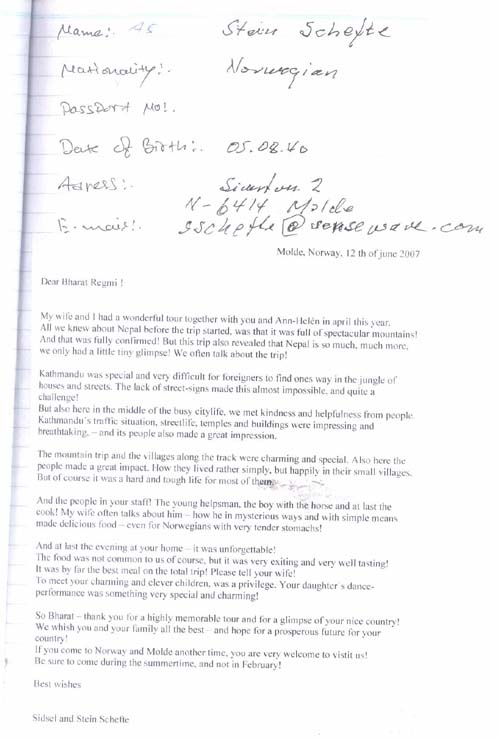 Name: AS Stein Schefte
Nationality: Norwegian
Passport No:
Date of Birth: 05.08.40
Adress: 2
N-6414 Molde
E-mail: sschefte@sensewave.com
Molde, Norway, 12 th of june 2007
Dear Bharat Regmi !
My wife and I had a wonderful tour together with you and Ann-Helén in april this year.
All we knew about Nepal before the trip started, was that it was full of spectacular mountains!
And that was fully confirmed! But this trip also revealed that Nepal is so much, much more,
we only had a little tiny glimpse! We often talk about the trip!
Kathmandu was special and very difficult for foreigners to find ones way in the jungle of
houses and streets. The lack of street-signs made this almost impossible, and quite a
challenge!
But also here in the middle of the busy citylife, we met kindness and helpfulness from people.
Kathmandu´s traffic situation, streetlife, temples and buildings were impressing and
breathtaking, – and its people also made a great impression.
The mountain trip and the villages along the track were charming and special. Also here the
people made a great impact. How they lived rather simply, but happily in their small villages.
But of course it was a hard and tough life for most of them.
And the people in your staff! The young helpsman, the boy with the horse and at last the
cook! My wife often talks about him – how he in mysterious ways and with simple means
made delicious food – even for Norwegians with very tender stomachs!
And at last the evening at your home – it was unforgettable!
The food was not common to us of course, but it was very exiting and very well tasting!
It was by far the best meal on the total trip! Please tell your wife!
To meet your charming and clever children, was a privilege. Your daughter´s dance-
performance was something very special and charming!
So Bharat – thank you for a highly memorable tour and for a glimpse of your nice country!
We whish you and your family all the best – and hope for a prosperous future for your
country!
If you come to Norway and Molde another time, you are very welcome to vistit us!
Be sure to come during the summertime, and not in February!
Best wishes
Sidsel and Stein Schefte